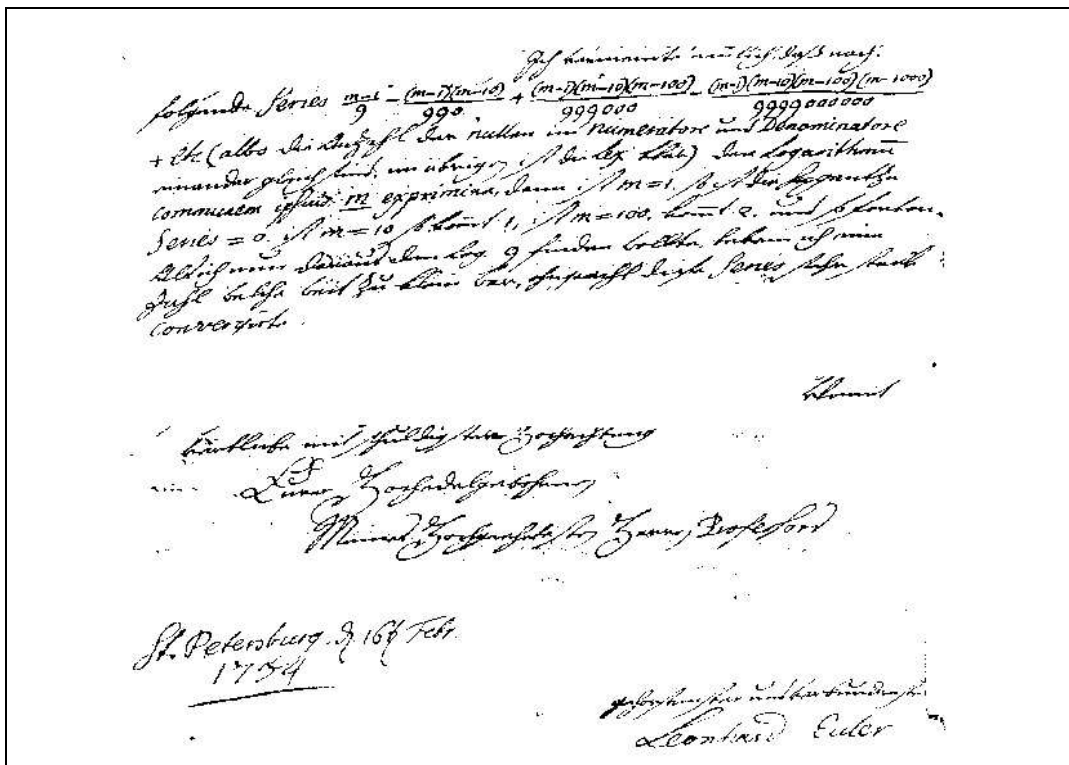 Ich vermeinte neulich, daß nach-
folgende Series (m-1)/9 - (m-1)(m-10)/990 + (m-1)(m-10)(m-100)/999000 - (m-1)(m-10)(m-100)(m-1000)/9999000000
+ etc. (allwo die Anzahl der nullen im numeratore und Denominatore
einander gleich sind, im übrigen ist die lex klar) den Logarithmum
communem ipsius m exprimire, denn ist m=1, so ist die gantze
Series = 0, ist m=10 so kömt 1, ist m=100, kömt 2, und so fortan.
Als ich nun daraus den Log. 9 finden wollte, bekam ich eine
Zahl welche weit zu klein war, ohngeacht diese Series sehr stark
convergirte.
Womit
verbleibe mit schuldigster Hochachtung
Eurer Hochedelgebohrnen
Meines Hochgeehrtesten Herrn Professors
St. Petersburg d. 16t Febr.
1734
gehorsamster und verbundenster
Leonhard Euler